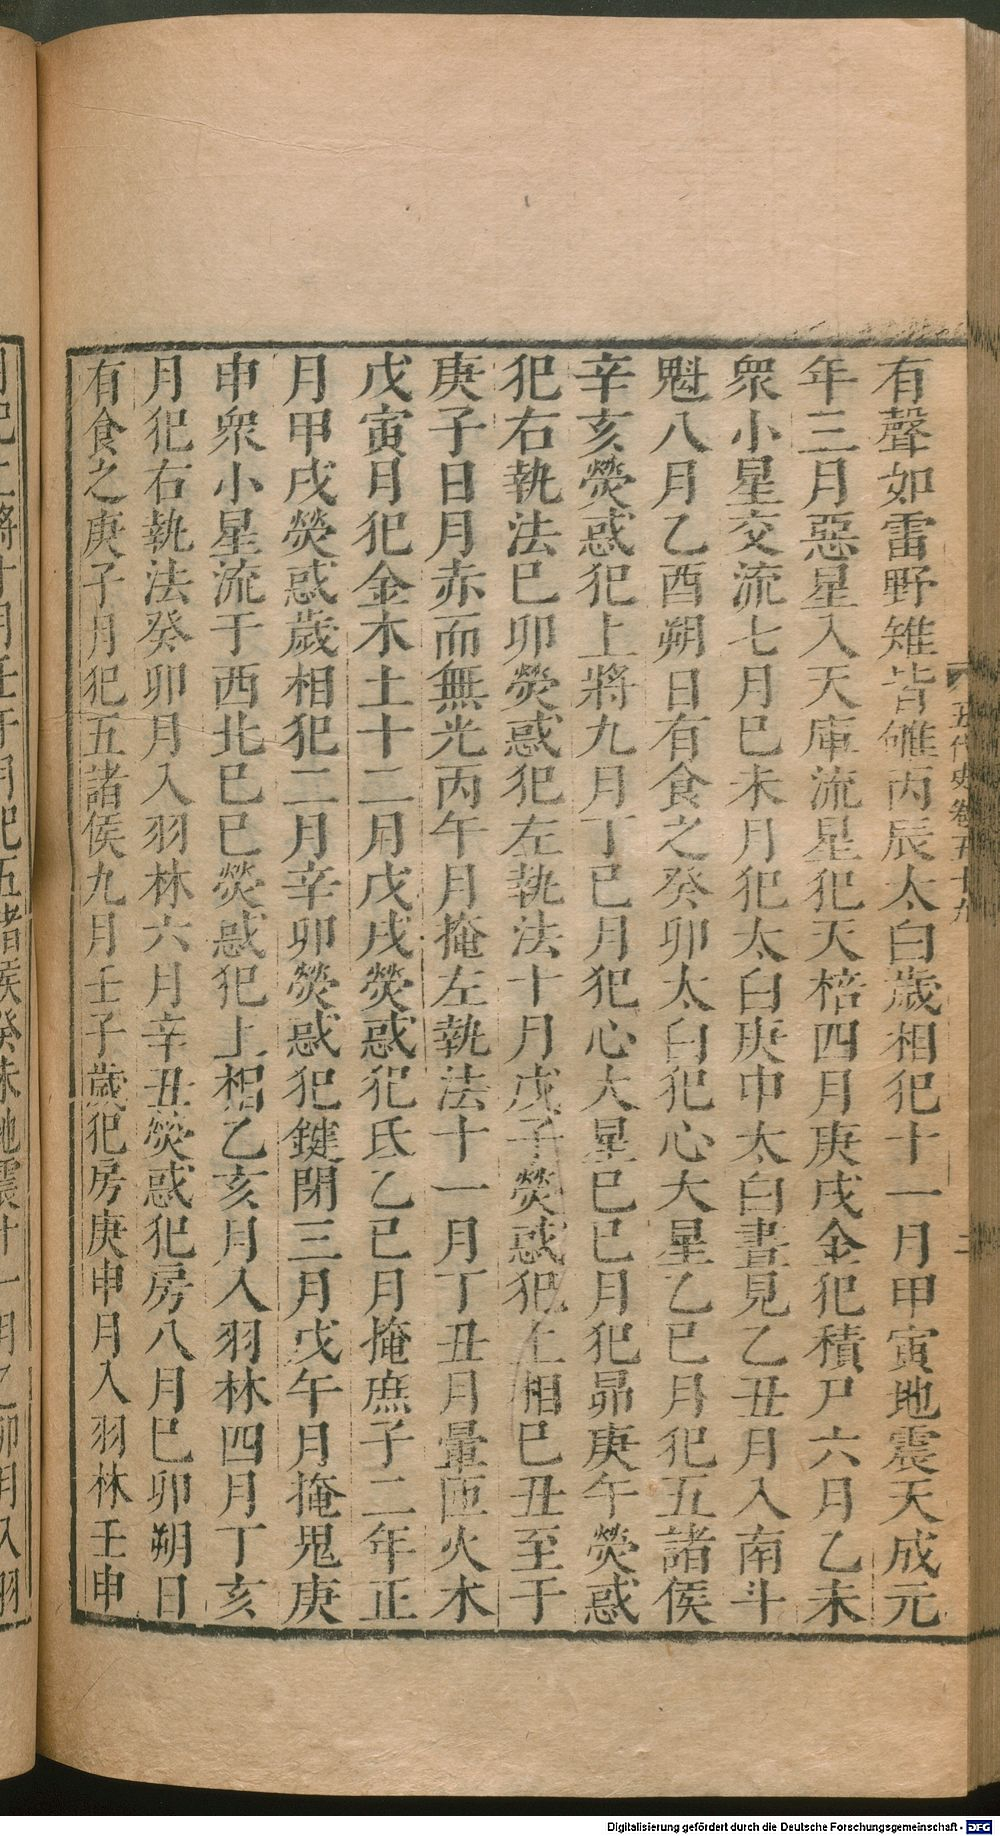 有聲如雷野雉皆雊丙辰太白歲相犯十一月甲寅地震天成元
年三月惡星入天庫流星犯天棓四月庚戌金犯積尸六月乙未
衆小星交流七月巳未月犯太白庚申太白晝見乙丑月入南斗
魁八月乙酉朔日有食之癸卯太白犯心大星乙巳月犯五諸侯
辛亥熒惑犯上將九月丁巳月犯心大星巳巳月犯昴庚午熒惑
犯右執法巳卯熒惑犯左執法十月戊子熒惑犯上相巳丑至于
庚子日月赤而無光丙午月掩左執法十一月丁丑月暈匝火木
戊寅月犯金木土十二月戊戌熒惑犯氐乙巳月掩庶子二年正
月甲戌熒惑歲相犯二月辛卯熒惑犯鍵閉三月戊午月掩鬼庚
申衆小星流于西北巳巳熒惑犯上相乙亥月入羽林四月丁亥
月犯右執法癸卯月入羽林六月辛丑熒惑犯房八月巳卯朔日
有食之庚子月犯五諸侯九月壬子歲犯房庚申月入羽林壬申
五代史卷五十九
二
月犯上將十月壬午月犯五諸侯癸未地震十一月乙卯月入羽
Digitalisierung gefördert durch die Deutsche Forschungsgemeinschaft - DFG